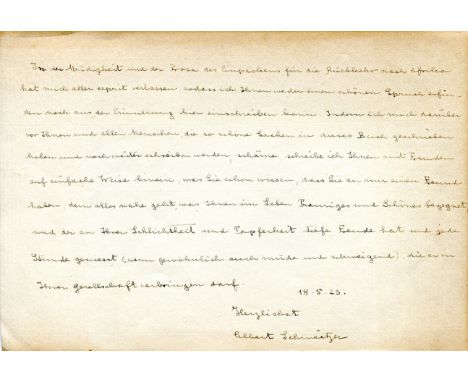 In der Müdigkeit und der Prosa des Einpackens für die Rückkehr nach Afrika
hat mich aller esprit verlassen, sodass ich Ihnen weder einen schönen Spruch erfin-
den noch aus der Erinnerung hier einschreiben kann. Indem ich mich darüber
vor Ihnen und allen Menschen die so schöne Sachen in dieses Buch geschrieben
haben und noch weiter schreiben werden, schäme, schreibe ich Ihnen mit Freuden
auf einfache Weise hinein, was Sie schon wissen, dass Sie an mir einen Freund
haben, dem alles nahe geht was Ihnen im Leben Trauriges und Schönes begegnet
und der an Ihrer Schlichtheit und Tapferkeit tiefe Freude hat und jede
Stunde geniesst (wenn gewöhnlich auch müde und schweigend) die er in
Ihrer Gesellschaft verbringen darf.
18.5.23.
Herzlichst
Albert Schweitzer